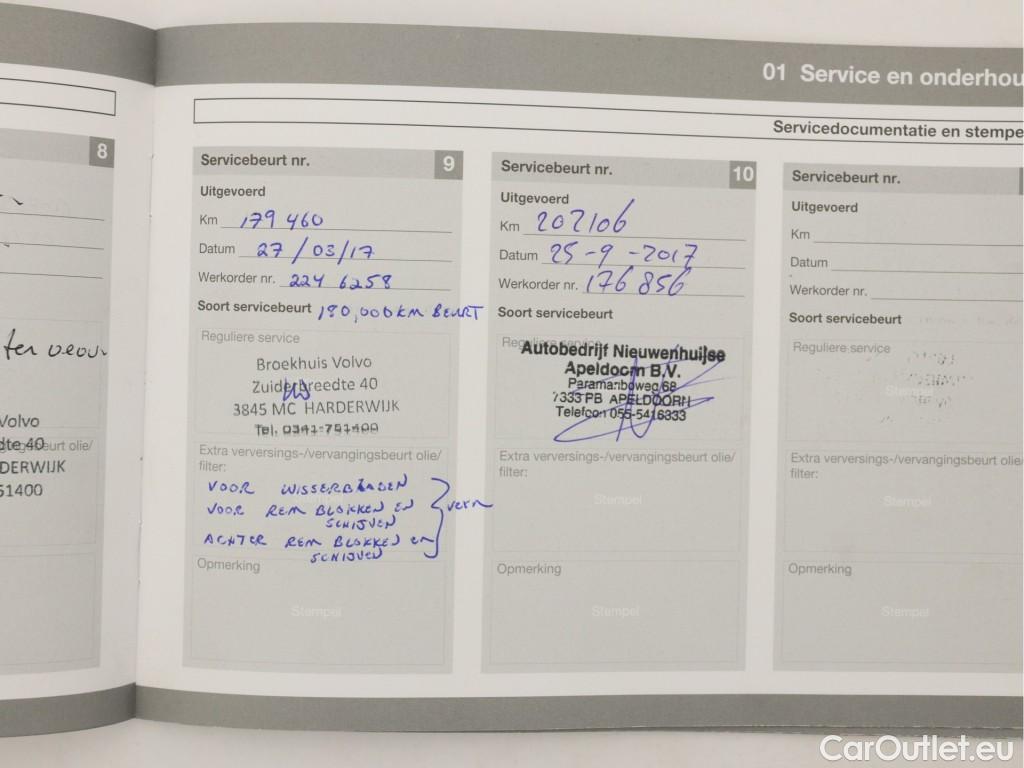 01 Service en onderhou
Servicedocumentatie en stempe
8
Volvo
dte 40
DERWIJK
51400
gingsbeurt olie/
Servicebeurt nr. 9
Uitgevoerd
Km 179460
Datum 27/03/17
Werkorder nr. 2246258
Soort servicebeurt 180,000KM BEURT
Reguliere service
Broekhuis Volvo
Zuiderbreedte 40
3845 MC HARDERWIJK
Tel. 0341-751400
Extra verversings-/vervangingsbeurt olie/
filter:
VOOR WISSERBLADEN
VOOR REM BLOKKEN EN
SCHIJVEN
ACHTER REM BLOKKEN EN
SCHIJVEN
Opmerking
Stempel
Servicebeurt nr. 10
Uitgevoerd
Km 202106
Datum 25-9-2017
Werkorder nr. 176856
Soort servicebeurt
Autobedrijf Nieuwenhuijse
Apeldoorn B.V.
Paramariboweg 68
7333 PB APELDOORN
Telefoon 055-5416333
Extra verversings-/vervangingsbeurt olie/
filter:
Stempel
Opmerking
Stempel
Servicebeurt nr.
Uitgevoerd
Km
Datum
Werkorder nr.
Soort servicebeurt
Reguliere service
Stempel
Extra verversings-/vervangingsbeurt olie/
filter:
Stempel
Opmerking
Stempel
CarOutlet.eu